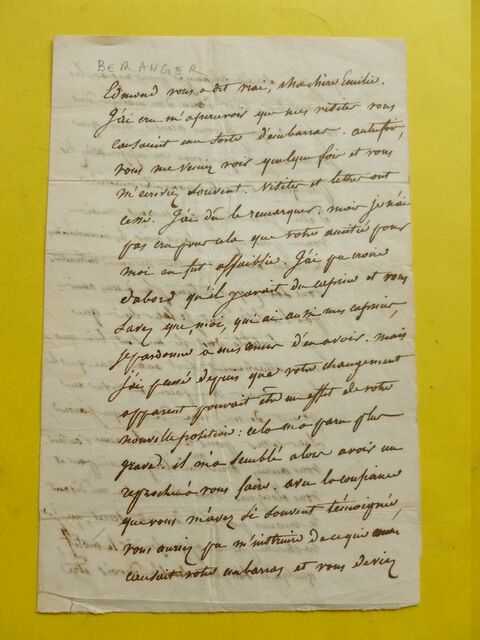 BERANGER
Edmond vous a dit vrai, ma chère Emilie.
J'ai cru m'apercevoir que mes visites vous
causaient une sorte d'embarras. autrefois,
vous me veniez voir quelque fois et vous
m'écriviez souvent. Visites et lettres ont
cessé. J'ai dû le remarquer. mais je n'ai
pas cru pour cela que votre amitié pour
moi en fut affaiblie. J'ai pu croire
d'abord qu'il y avait du caprice et vous
savez que moi, qui ai aussi mes caprices,
je pardonne à mes amis d'en avoir. mais
j'ai pensé depuis que votre changement
apparent pouvait être un effet de votre
nouvelle position: cela m'a paru plus
grave. il m'a semblé alors avoir un
reproche à vous faire. avec la confiance
que vous m'avez si souvent témoignée,
vous auriez pu m'instruire de ce qui
causait votre embarras et vous deviez